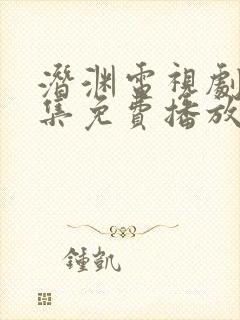 潛渊電視劇
集免費播放
鍾凱